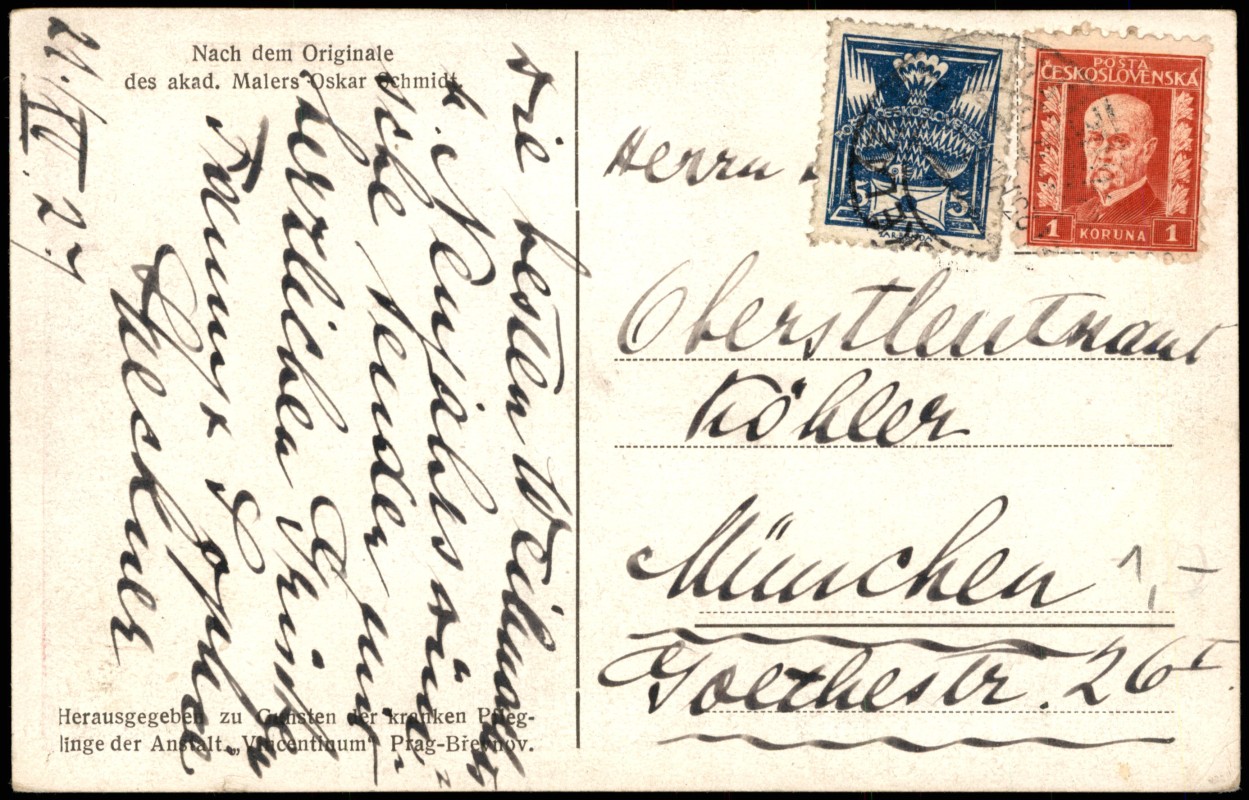 Nach dem Originale
des akad. Malers Oskar Schmidt
21./XII. 27
Die besten Weihnachts
u. Neujahrswün-
sche senden mit
herzlichen Grüssen
Fanny & Sophie
Herausgegeben zu Gunsten der kranken Pfleg-
linge der Anstalt „Vincentinum“ Prag-Břevnov.
POŠTA ČESKOSLOVENSKÁ
5 5
POŠTA
ČESKOSLOVENSKÁ
1 KORUNA 1
Herrn
Oberstleutnant
Köhler
München
Goethestr. 26 I